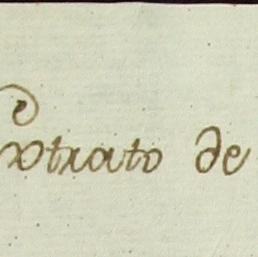 Extrato de